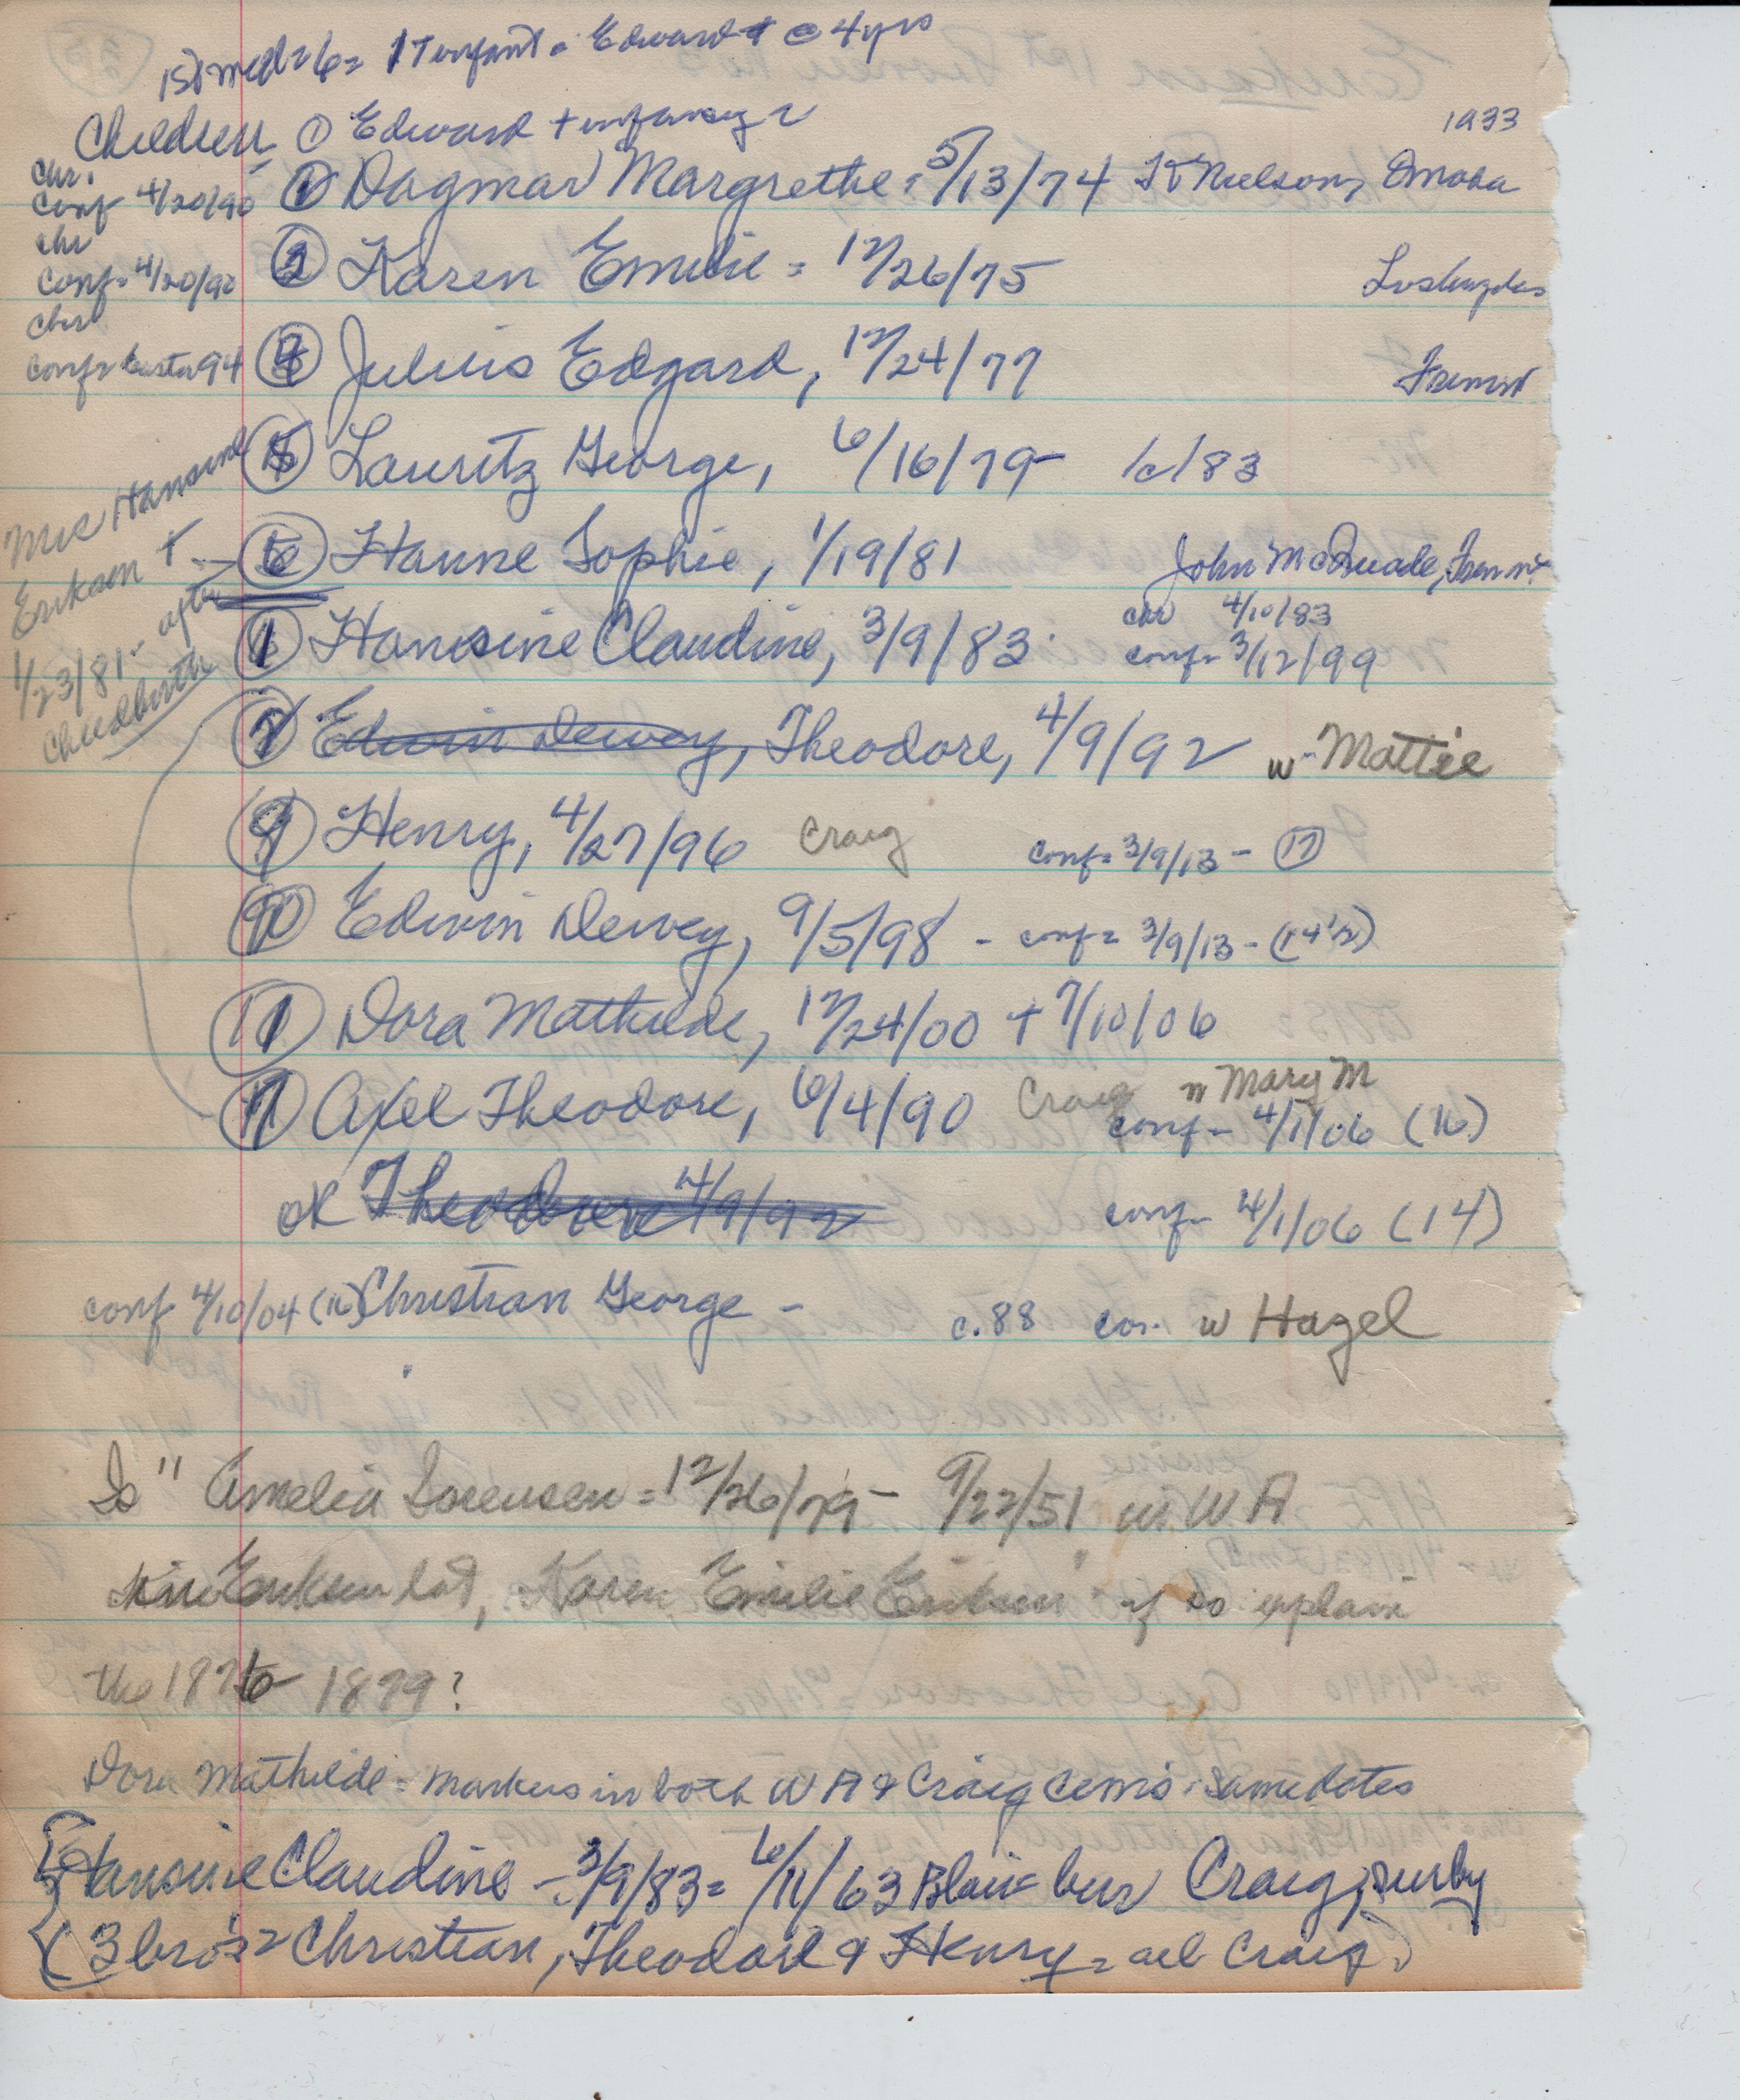 1st = 6 = 1 infant = Edward † @ 4 yrs
Children ① Edward † infancy
1933
chr.
conf 4/20/90 ① Dagmar Margrethe = 5/13/74 Nielson, Omaha
chr
conf = 4/20/90 ② Karen Emilie = 12/26/75 Los Angeles
chr
conf = Easter 94 Julius Edgard, 12/24/77 Fremont
Lauritz George, 6/16/79 - /c/83
⑥ Hanne Sophie, 1/19/81 John McQuade, Fremnt.
Mrs Hansine
Erikson †
1/23/81 - after
childbirth
Hansine Claudine, 3/9/83 chr 4/10/83
conf = 3/12/99
Edwin Dewey, Theodore, 4/9/92 w - Mattie
Henry, 4/27/96 Craig conf = 3/9/13 - ⑰
Edwin Dewey, 9/5/98 - conf = 3/9/13 - (14 1/2)
Dora Mathilde, 12/24/00 † 7/10/06
Axel Theodore, 6/4/90 Craig w Mary M
conf - 4/1/06 (16)
OK Theodore 4/9/92 conf - 4/1/06 (14)
conf 4/10/04 (16) Christian George - c. 88 w Hazel
Is " Amelia Sorensen = 12/26/79 - 9/22/51 in WA
Erikson lot, Karen Emilie Erikson" if so explain
the 1876 1879?
Dora Mathilde = markers in both WA & Craig cems. same dates
Hansine Claudine - 3/9/83 = 6/11/63 Blair = bur Craig,
(3 bro's = Christian, Theodore & Henry = all Craig)